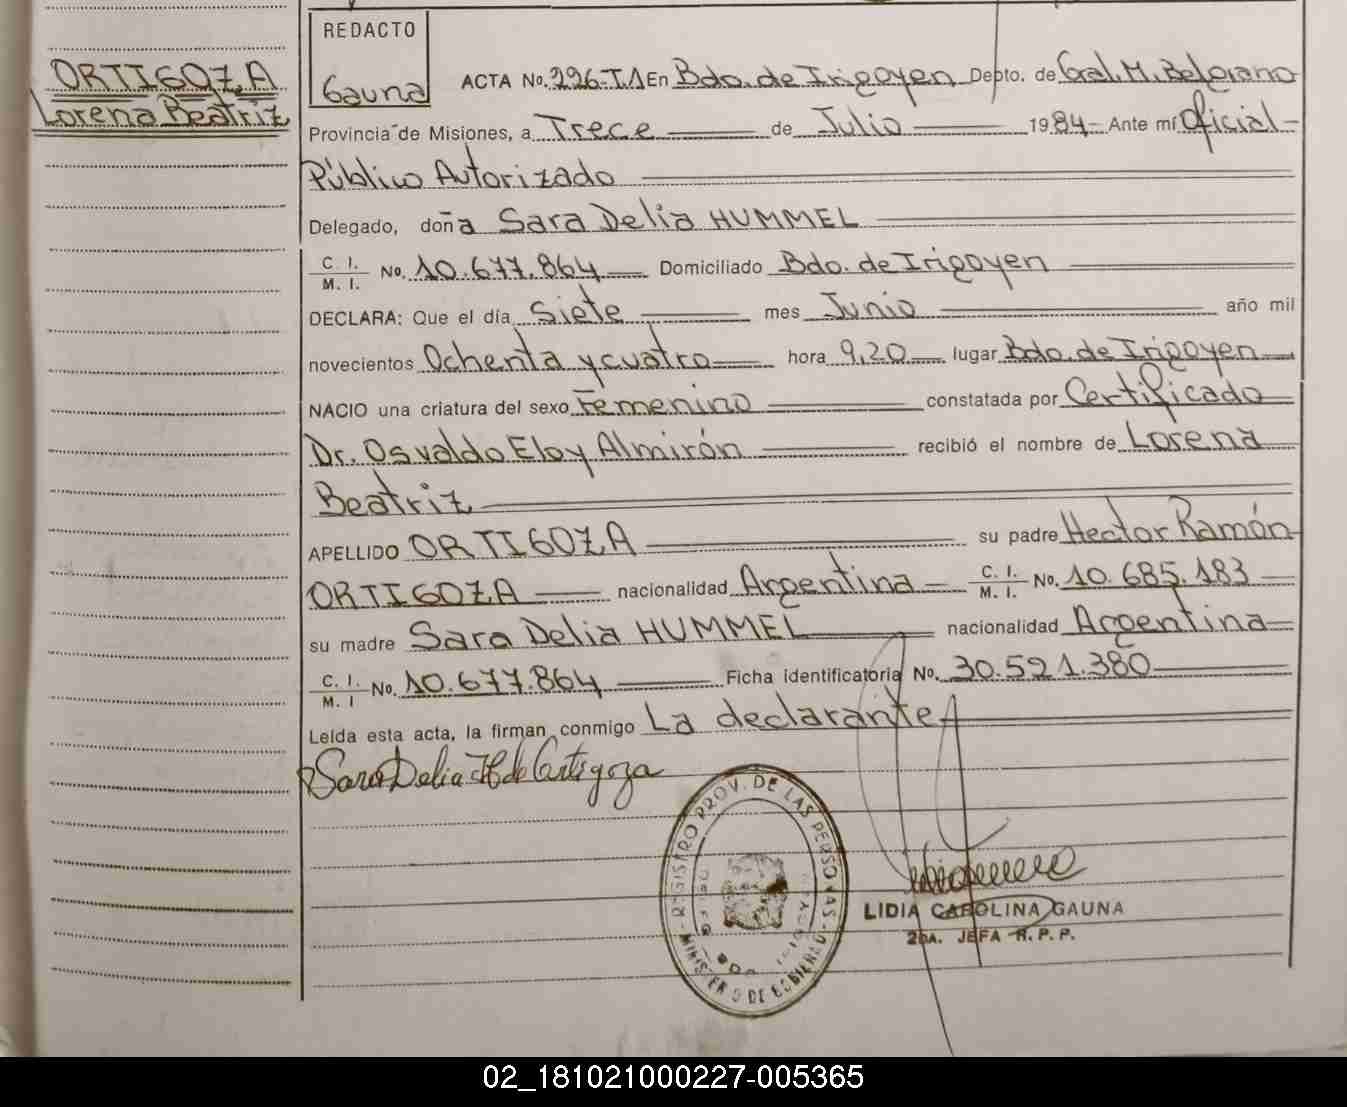 ORTIGOZA
Lorena Beatriz
REDACTO
Gauna
ACTA No. 226-T.1 En Bdo. de Irigoyen Depto. de Gral. M. Belgrano
Provincia de Misiones, a Trece de Julio 1984- Ante mí Oficial
Público Autorizado
Delegado, doña Sara Delia HUMMEL
C. I. / M. I. No. 10.677.864 Domiciliado Bdo. de Irigoyen
DECLARA: Que el día Siete mes Junio año mil
novecientos Ochenta y cuatro hora 9,20 lugar Bdo. de Irigoyen
NACIO una criatura del sexo Femenino constatada por Certificado
Dr. Osvaldo Eloy Almirón recibió el nombre de Lorena
Beatriz
APELLIDO ORTIGOZA su padre Hector Ramón
ORTIGOZA nacionalidad Argentina C. I. / M. I. No. 10.685.183
su madre Sara Delia HUMMEL nacionalidad Argentina
C. I. / M. I No. 10.677.864 Ficha identificatoria No. 30.521.380
Leída esta acta, la firman conmigo La declarante
Sara Delia H de Ortigoza
REGISTRO PROV. DE LAS PERSONAS - MINISTERIO DE GOBIERNO
LIDIA CAROLINA GAUNA
2DA. JEFA R. P. P.
02_181021000227-005365